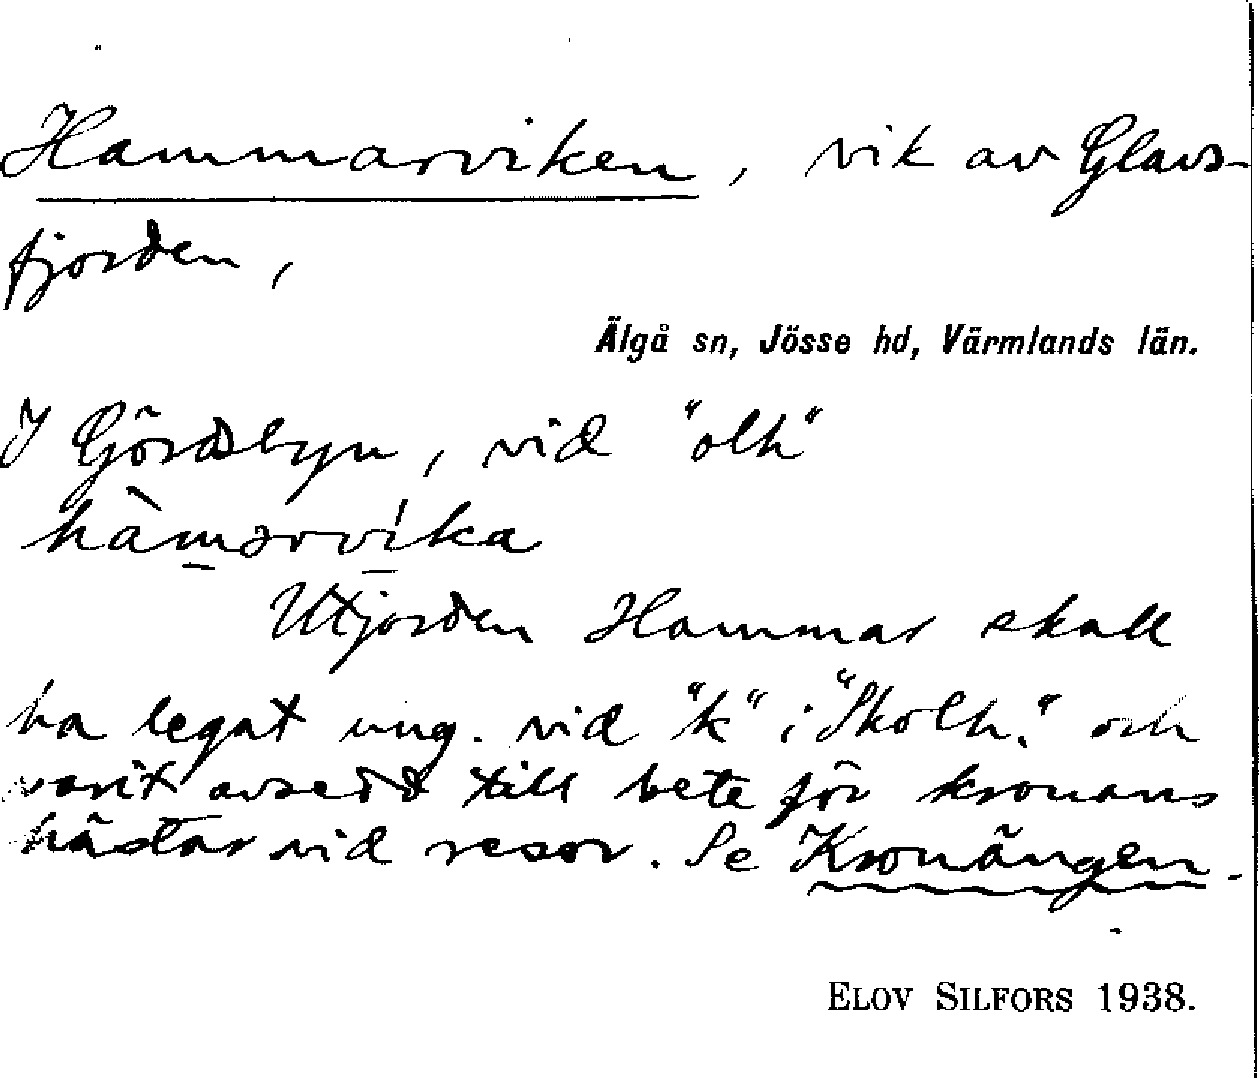 Hammarviken, vik av Glavs-
fjorden,
Älgå sn, Jösse hd, Värmlands län.
I Gördsbyn, vid "olh"
hàmərvíka
Utjorden Hammar skall
ha legat ung. vid "k" i "Skolh." och
varit avsedd till bete för kronans
hästar vid resor. Se Kronängen.
ELOV SILFORS 1938.